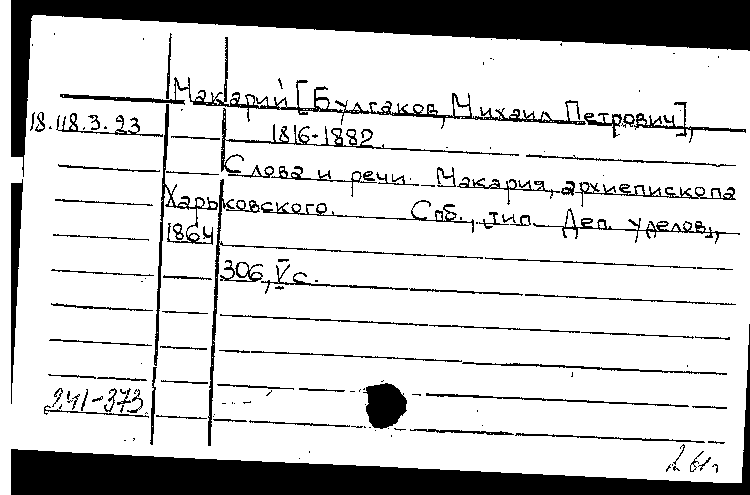 Макарий [Булгаков, Михаил Петрович],
18.118.3.23
1816-1882.
Слова и речи Макария, архиепископа
Харьковского. Спб., тип. Деп. уделов,
1864
306, V с.
241-373